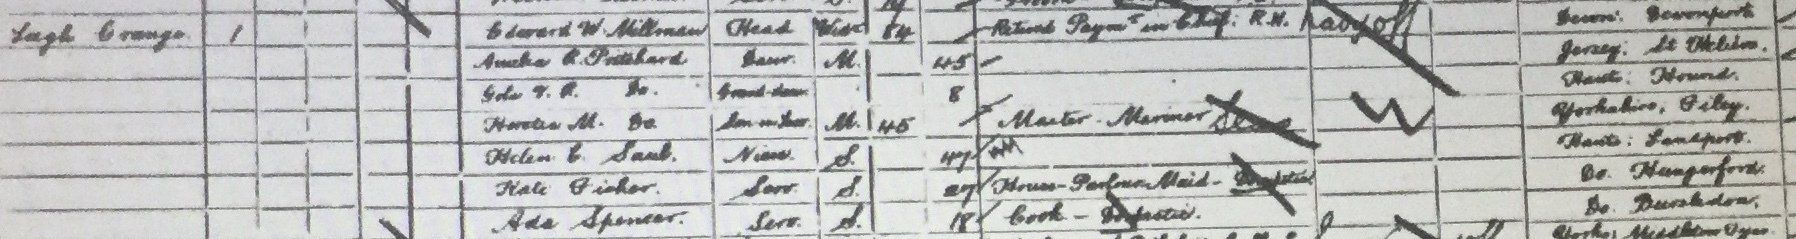 Leigh Grange 1 Edward W. Millman Head Widr 84 Retired Paymr in Chief: R.N. Navy off Devon: Devonport
Amelia R. Pritchard Daur. M. 45 Jersey: St Heliers.
V. R. Do. Grand-daur 8 Hants: Hound.
Horatio M. Do Son-in-law M. 45 Master Mariner W Yorkshire, Filey.
Helen E. Saul. Niece. S. 47 Hants: Landport.
Kate Fisher. Serv. S. 27 House-Parlour-Maid - Domestic Do. Hungerford.
Ada Spencer. Serv. S. 18 Cook - Domestic. Do. Bursledon.